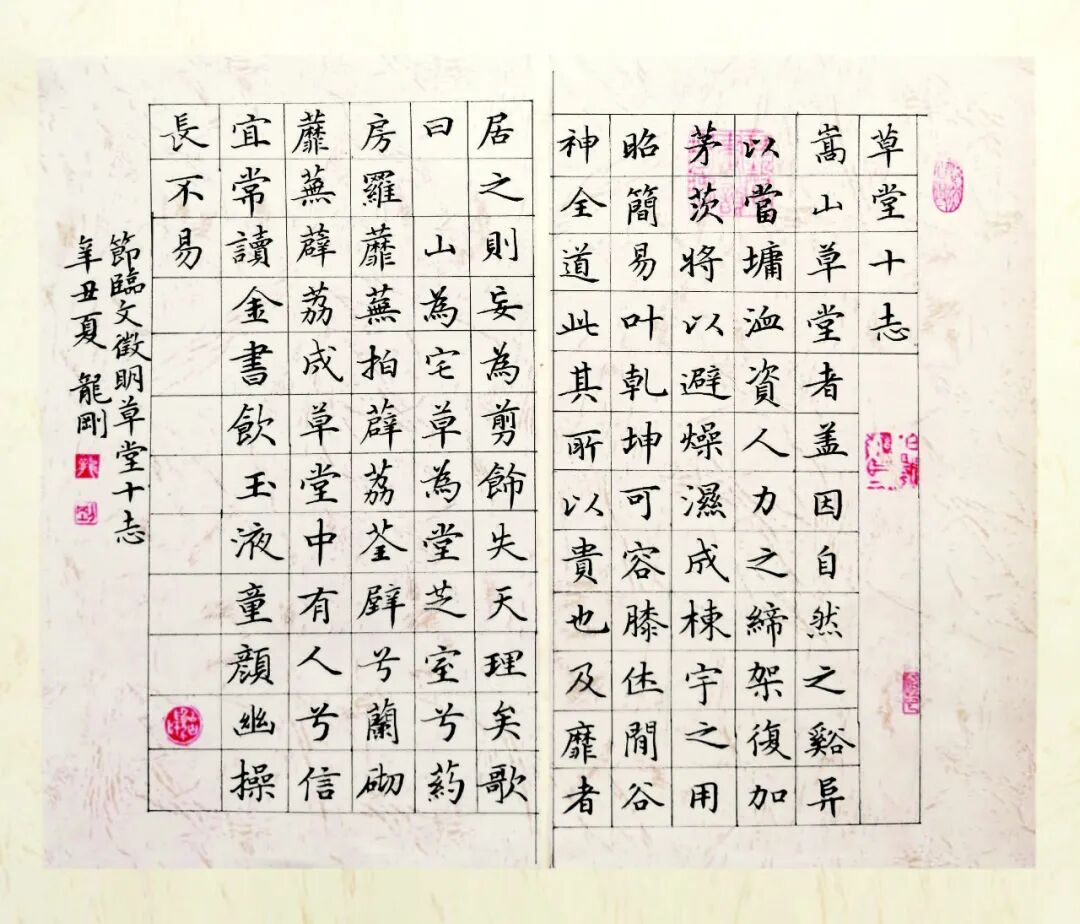 草堂十志
嵩山草堂者盖因自然之谿阜
以當墉洫資人力之締架復加
茅茨將以避燥濕成棟宇之用
昭簡易叶乾坤可容膝休閒谷
神全道此其所以貴也及靡者
居之則妄為剪飾失天理矣歌
曰 山為宅草為堂芝室兮葯
房羅蘼蕪拍薜荔荃壁兮蘭砌
蘼蕪薜荔成草堂中有人兮信
宜常讀金書飲玉液童顏幽操
長不易
節臨文徵明草堂十志
辛丑夏 龍剛